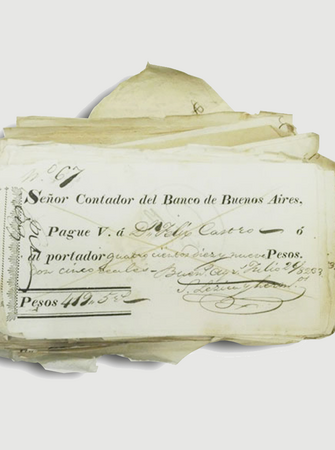 No 67
Señor Contador del Banco de Buenos Aires,
Pague V. á Castro ó
al portador quatrocientos diez y nueve Pesos.
con cinco reales Buen. Ayr. Julio
Pesos 419. 5 rs